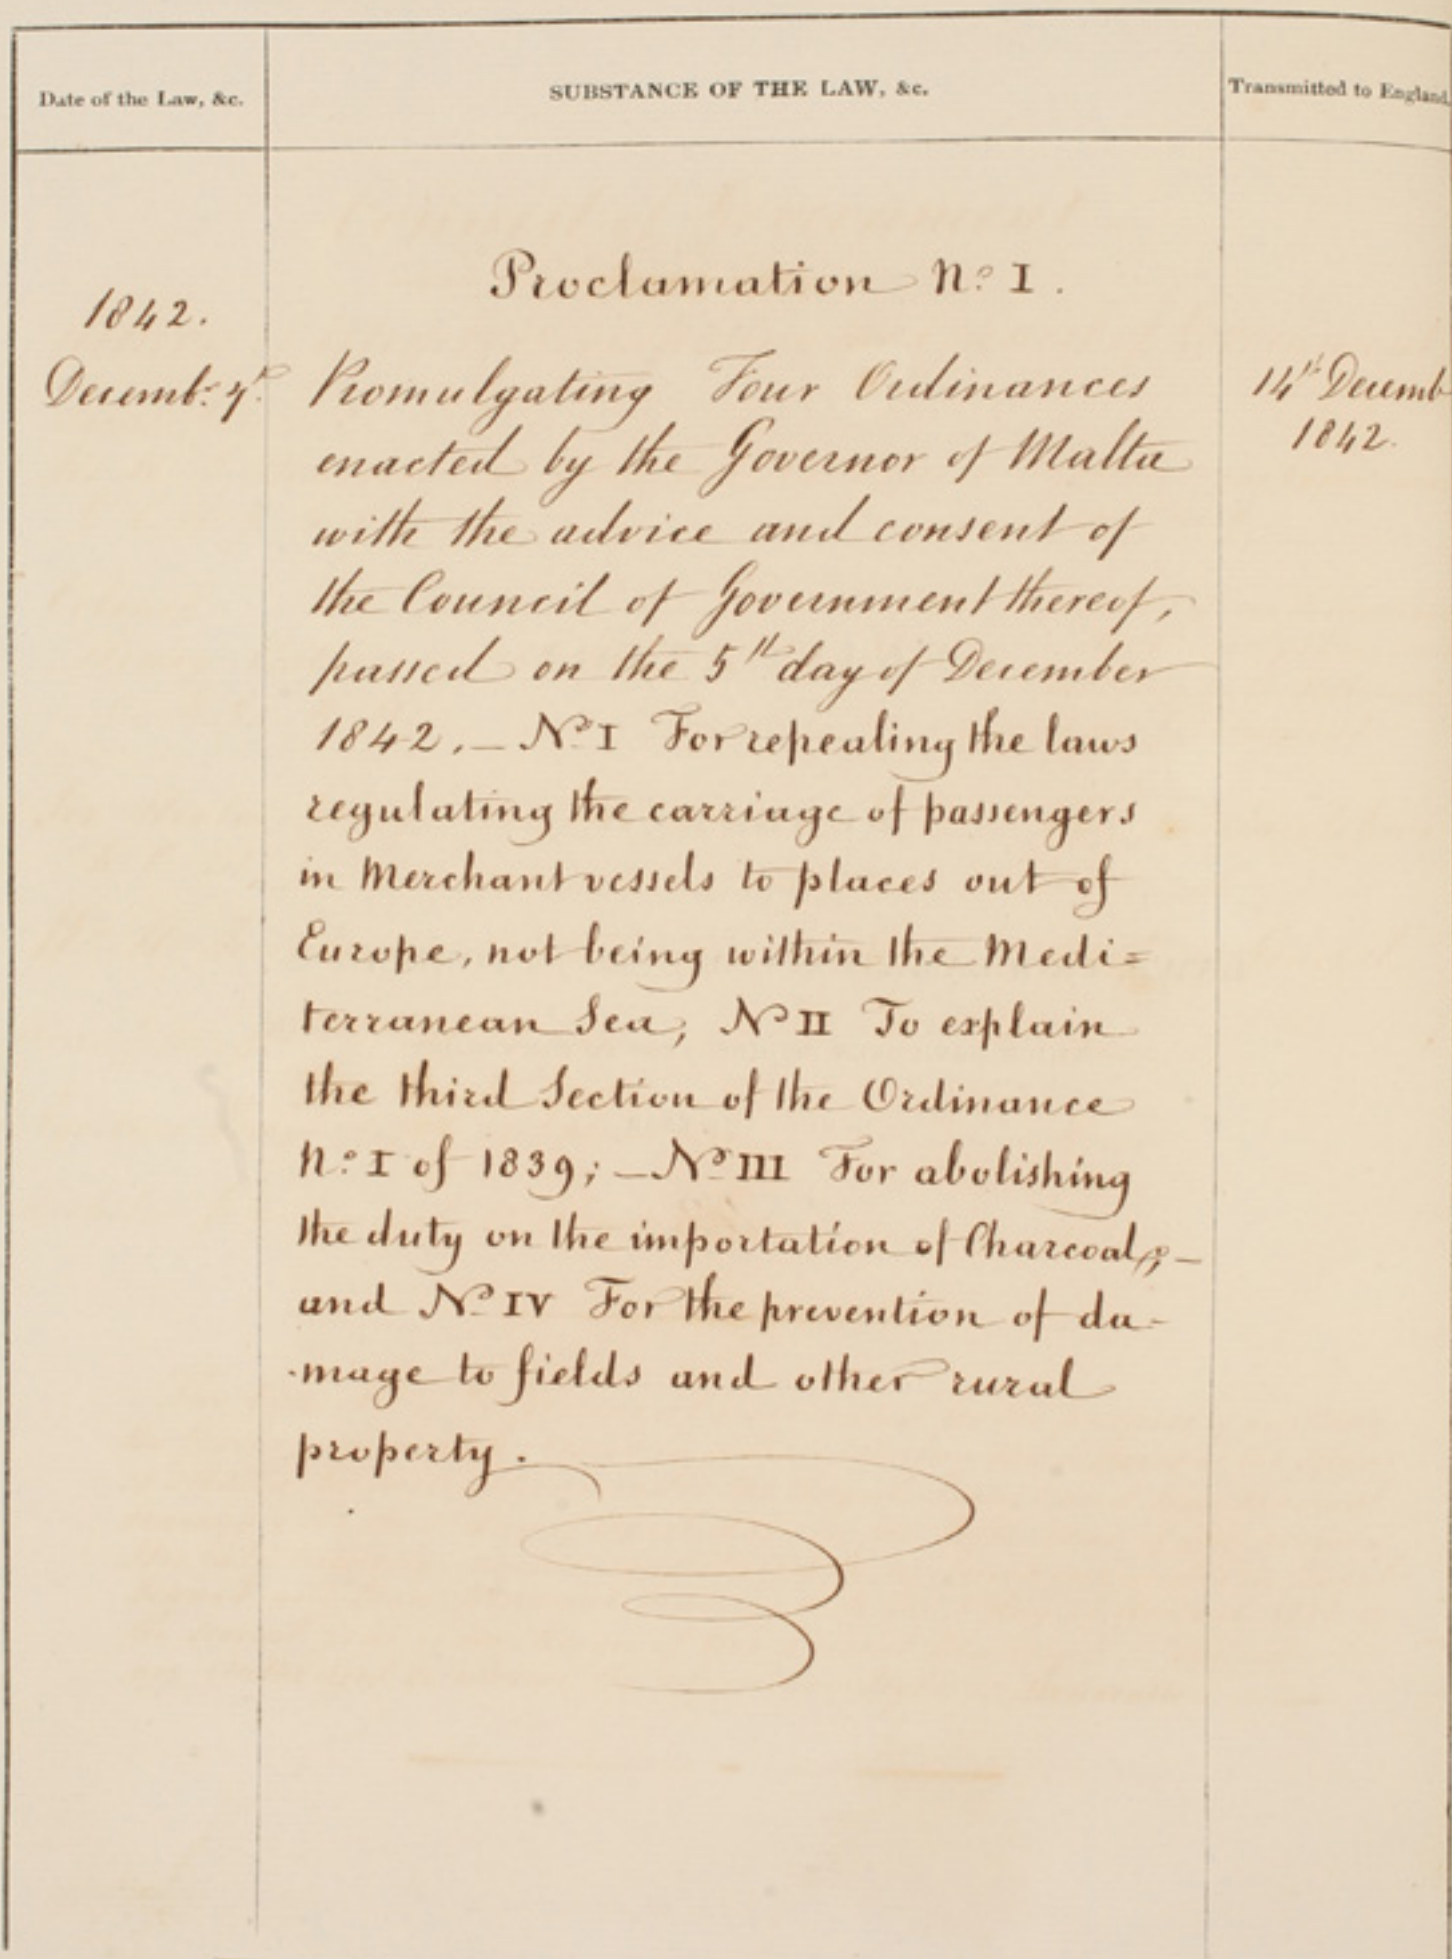 Date of the Law, &c.
SUBSTANCE OF THE LAW, &c.
Transmitted to England
Proclamation No. I.
1842.
Decemb:
Promulgating Four Ordinances
enacted by the Governor of Malta
with the advice and consent of
the Council of Government thereof,
passed on the 5th day of December
1842. — No. I For repealing the laws
regulating the carriage of passengers
in Merchant vessels to places out of
Europe, not being within the Medi=
terranean Sea; No. II To explain
the third Section of the Ordinance
No. I of 1839; — No. III For abolishing
the duty on the importation of Charcoal; —
and No. IV For the prevention of da-
-mage to fields and other rural
property.
14th Decemb
1842.